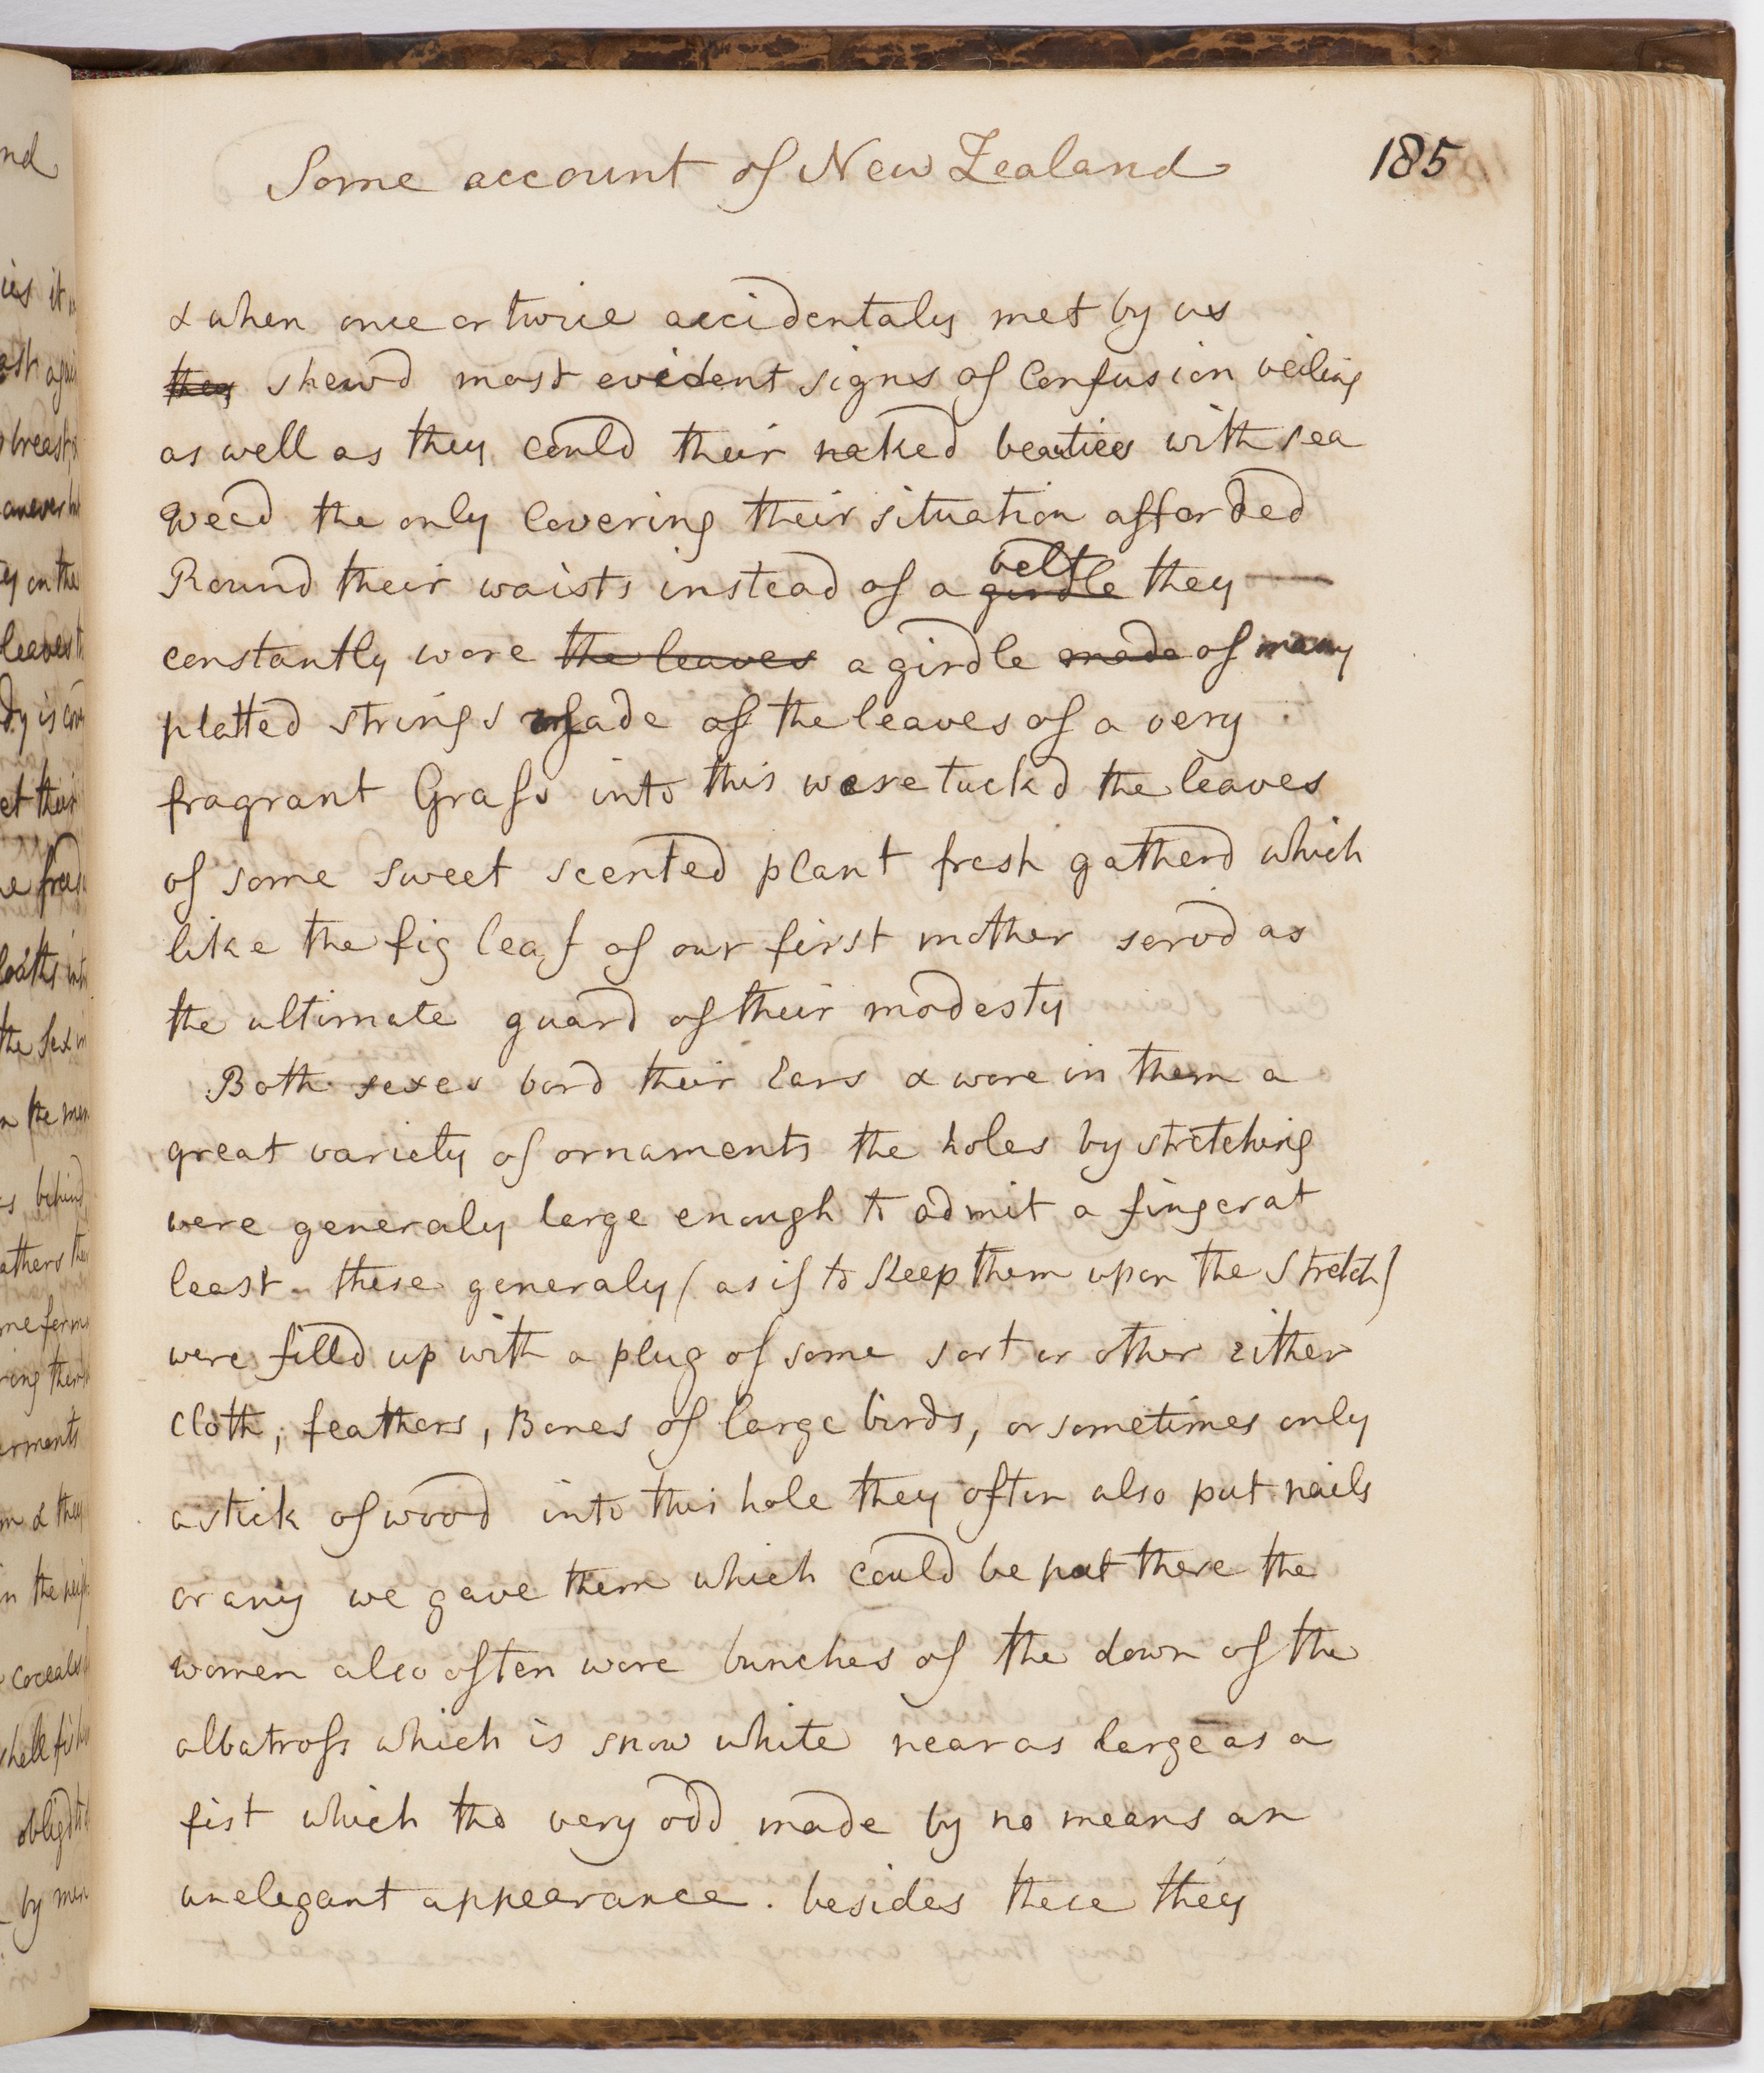 Some account of New Zealand
185
& when once or twice accidentaly met by us
they shewd most evident signs of Confusion veiling
as well as they could their naked beauties with sea
weed the only covering their situation afforded
Round their waists instead of a girdle belt they
constantly wore the leaves a girdle made of many
platted strings made of the leaves of a very
fragrant Grass into this were tuckd the leaves
of some sweet scented plant fresh gatherd which
like the fig leaf of our first mother servd as
the ultimate guard of their modesty
Both sexes bord their Ears & wore in them a
great variety of ornaments the holes by stretching
were generaly large enough to admit a finger at
least. these generaly (as if to keep them upon the stretch)
were filld up with a plug of some sort or other either
cloth, feathers, Bones of large birds, or sometimes only
a stick of wood into this hole they often also put nails
or any we gave them which could be put there the
women also often wore bunches of the down of the
albatross which is snow white near as large as a
fist which tho very odd made by no means an
unelegant appearance. besides these they